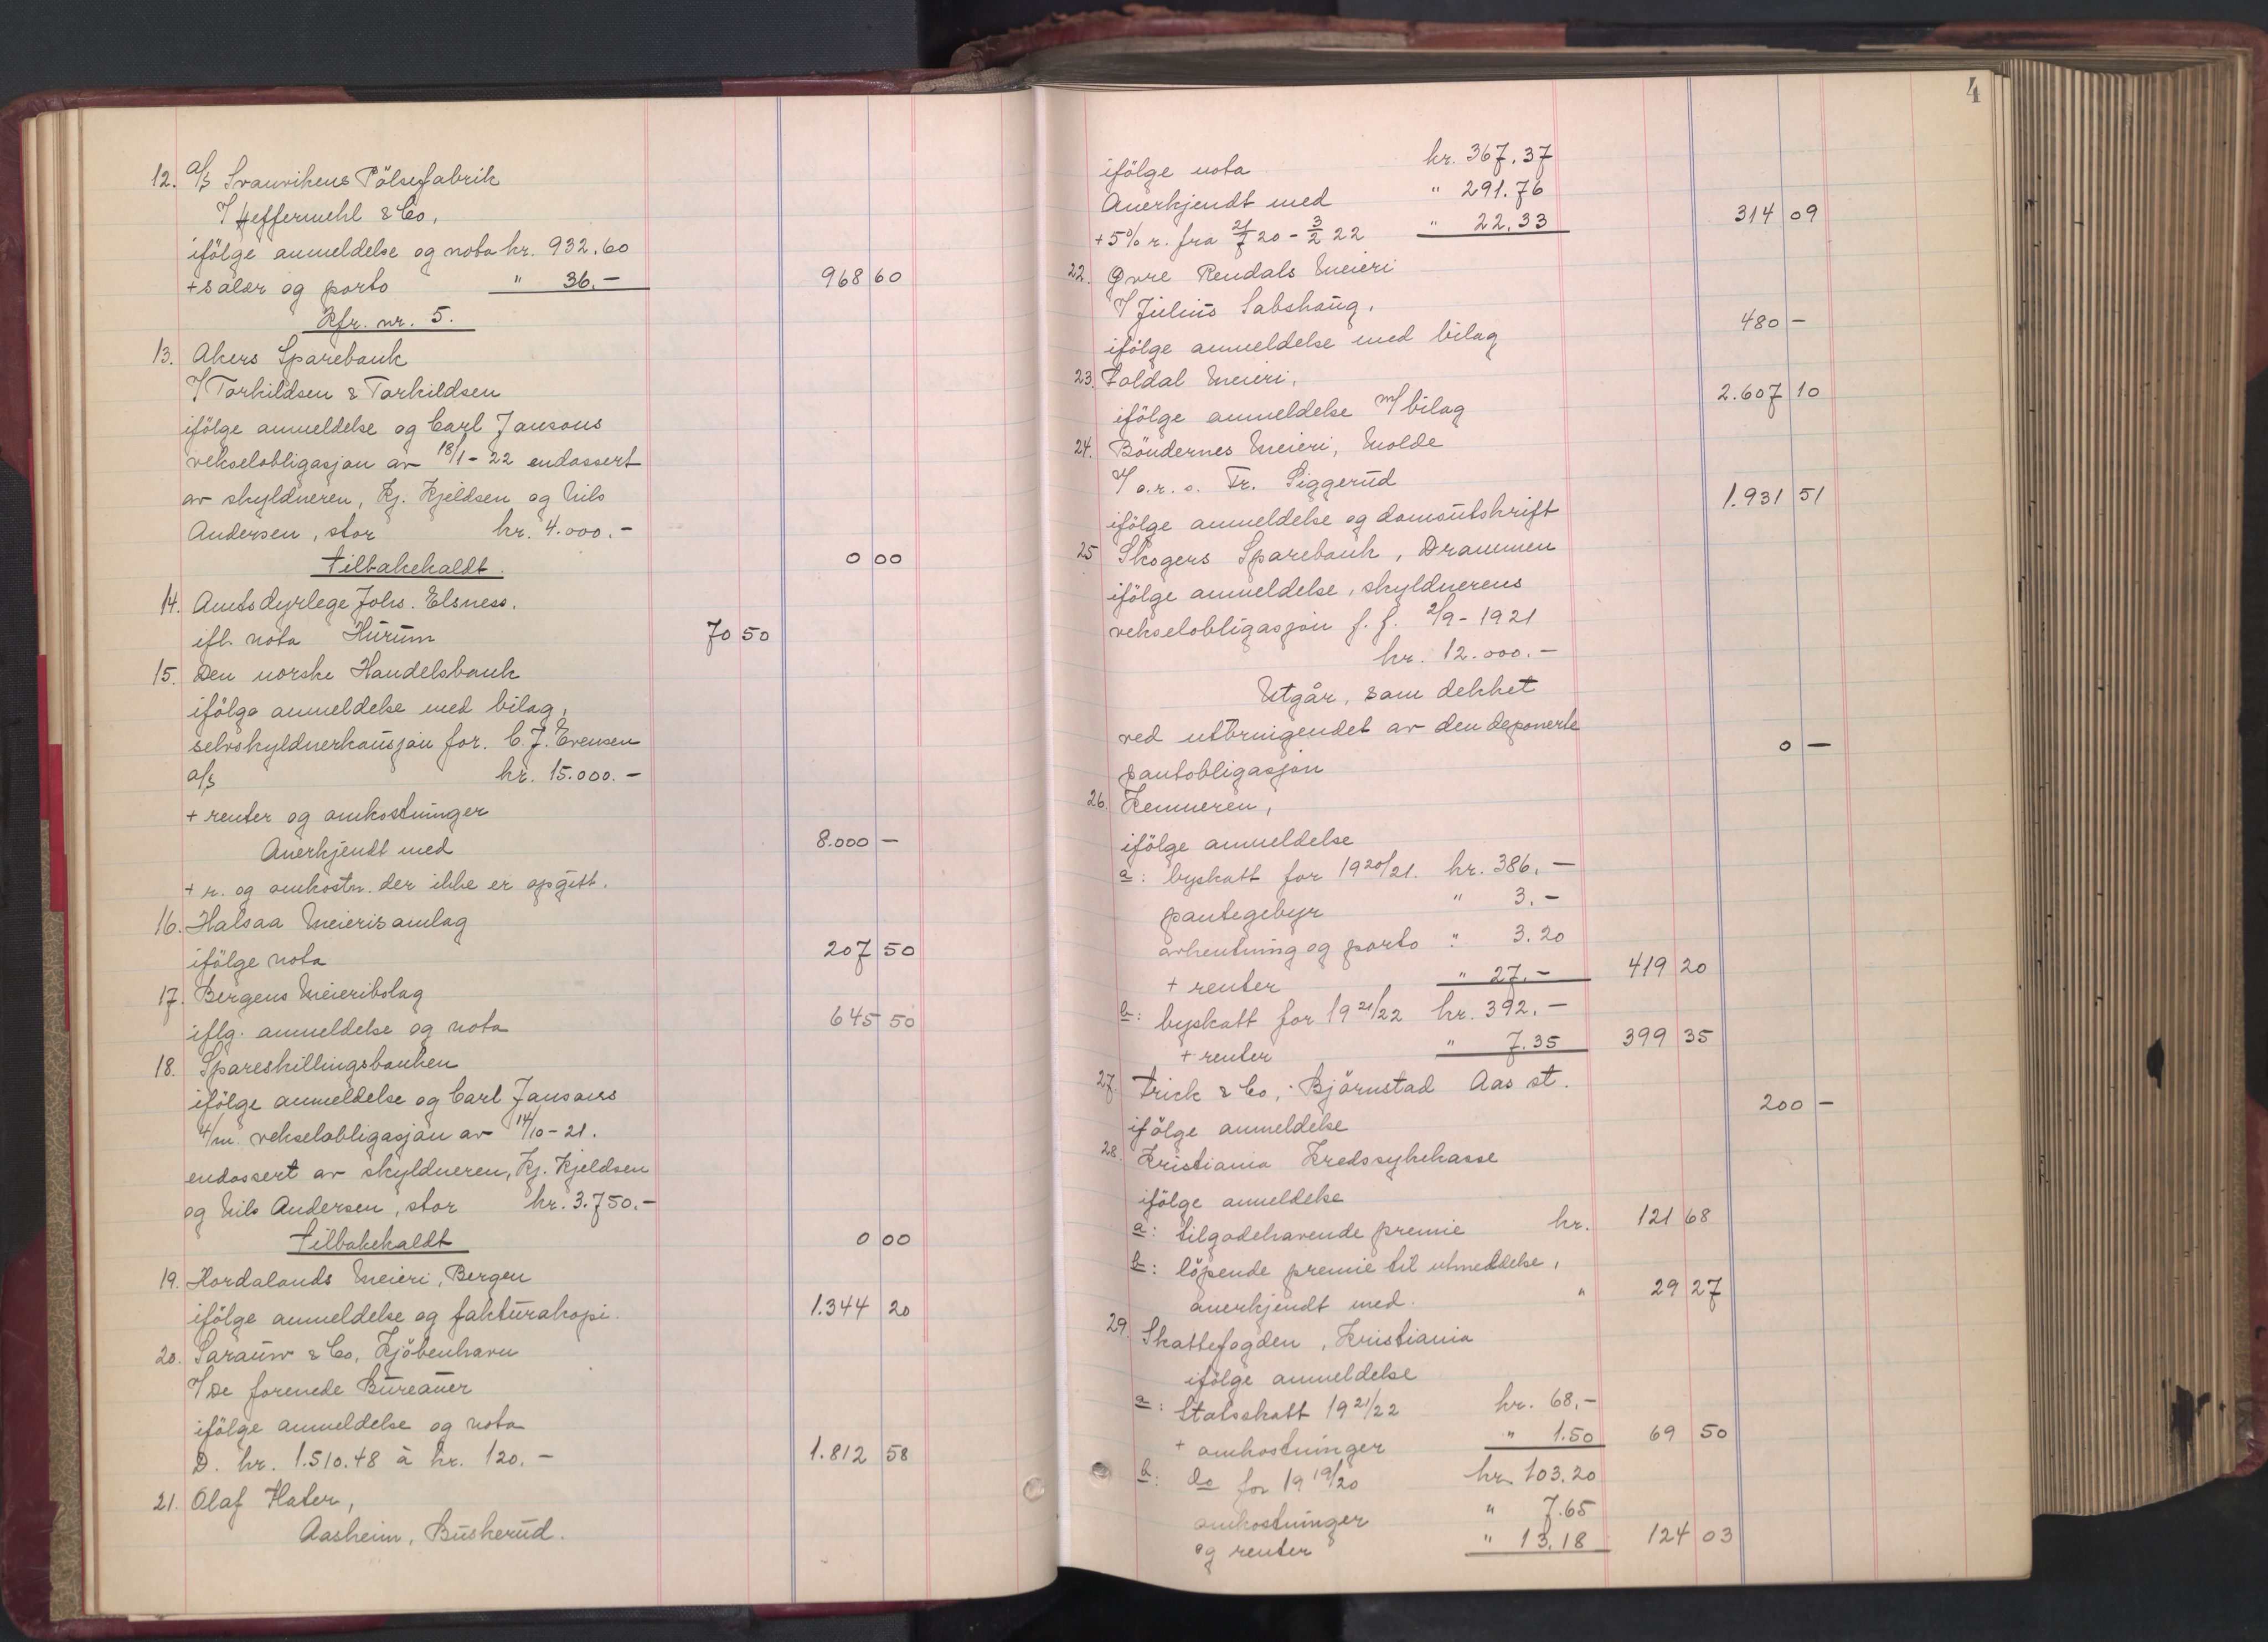 12. A/S Svanvikens Pölsefabrik
v/ Heffermehl & Co.
ifölge anmeldelse og nota kr. 932.60
+ salær og porto " 36.- 968 60
Kfr. nr. 5.
13. Akers Sparebank
v/ Torkildsen & Torkildsen
ifölge anmeldelse og Carl Jansons
vekselobligasjon av 18/1-22 endossert
av skyldneren, Kj. Kjeldsen og Nils
Andersen, stor kr. 4.000.-
tilbakekaldt. 0 00
14. Amtsdyrlege Johs. Elsness.
ifl. nota Hurum 70 50
15. Den norske Handelsbank
ifölge anmeldelse med bilag,
selvskyldnerkausjon for C. J. Evensen
A/S kr. 15.000.-
+ renter og omkostninger
Anerkjendt med 8.000 -
+ r. og omkostn. der ikke er opgitt.
16. Halsaa Meierisamlag
ifölge nota 207 50
17. Bergens Meieribolag
iflg. anmeldelse og nota 645 50
18. Spareskillingsbanken
ifölge anmeldelse og Carl Jansons
4/m. vekselobligasjon av 14/10-21.
endossert av skyldneren, Kj. Kjeldsen
og Nils Andersen, stor kr. 3.750.-
tilbakekaldt 0 00
19. Hordalands Meieri, Bergen
ifölge anmeldelse og fakturakopi. 1.344 20
20. Sarauw & Co, Kjöbenhavn
v/ De forenede Bureauer
ifölge anmeldelse og nota
D. kr. 1.510.48 à kr. 120.- 1.812 58
21. Olaf Hater,
Aasheim, Buskerud.
4
ifölge nota kr. 367.37
Anerkjendt med " 291.76
+ 5% r. fra 21/7 20 - 3/2 22 " 22.33 314 09
22. Øvre Rendals Meieri
v/ Julius Sabshaug.
ifölge anmeldelse med bilag 480 -
23. Foldal Meieri,
ifölge anmeldelse m/bilag 2.607 10
24. Böndernes Meieri, Molde
v/ o.r.s. Fr. Siggerud
ifölge anmeldelse og domsutskrift 1.931 51
25 Skogers Sparebank, Drammen
ifölge anmeldelse, skyldnerens
vekselobligasjon f. f. 2/9-1921
kr. 12.000.-
Utgår, som dekket
ved utbringendet av den deponerte
pantobligasjon 0 -
26. Kemneren,
ifölge anmeldelse
a: byskatt for 1920/21. kr. 386.-
pantegebyr " 3.-
avhentning og porto " 3.20
+ renter " 27.- 419 20
b: byskatt for 1921/22 kr. 392.-
+ renter " 7.35 399 35
27. Frick & Co, Björnstad Aas st.
ifölge anmeldelse 200 -
28. Kristiania Kredssykekasse
ifölge anmeldelse
a: tilgodehavende premie kr. 121 68
b: löpende premie til utmeddelse,
anerkjendt med. " 29 27
29. Skattefogden, Kristiania
ifölge anmeldelse
a: Statsskatt 1921/22 kr. 68.-
+ omkostninger " 1.50 69 50
b: do for 1919/20 kr. 103.20
omkostninger " 7.65
og renter " 13.18 124 03